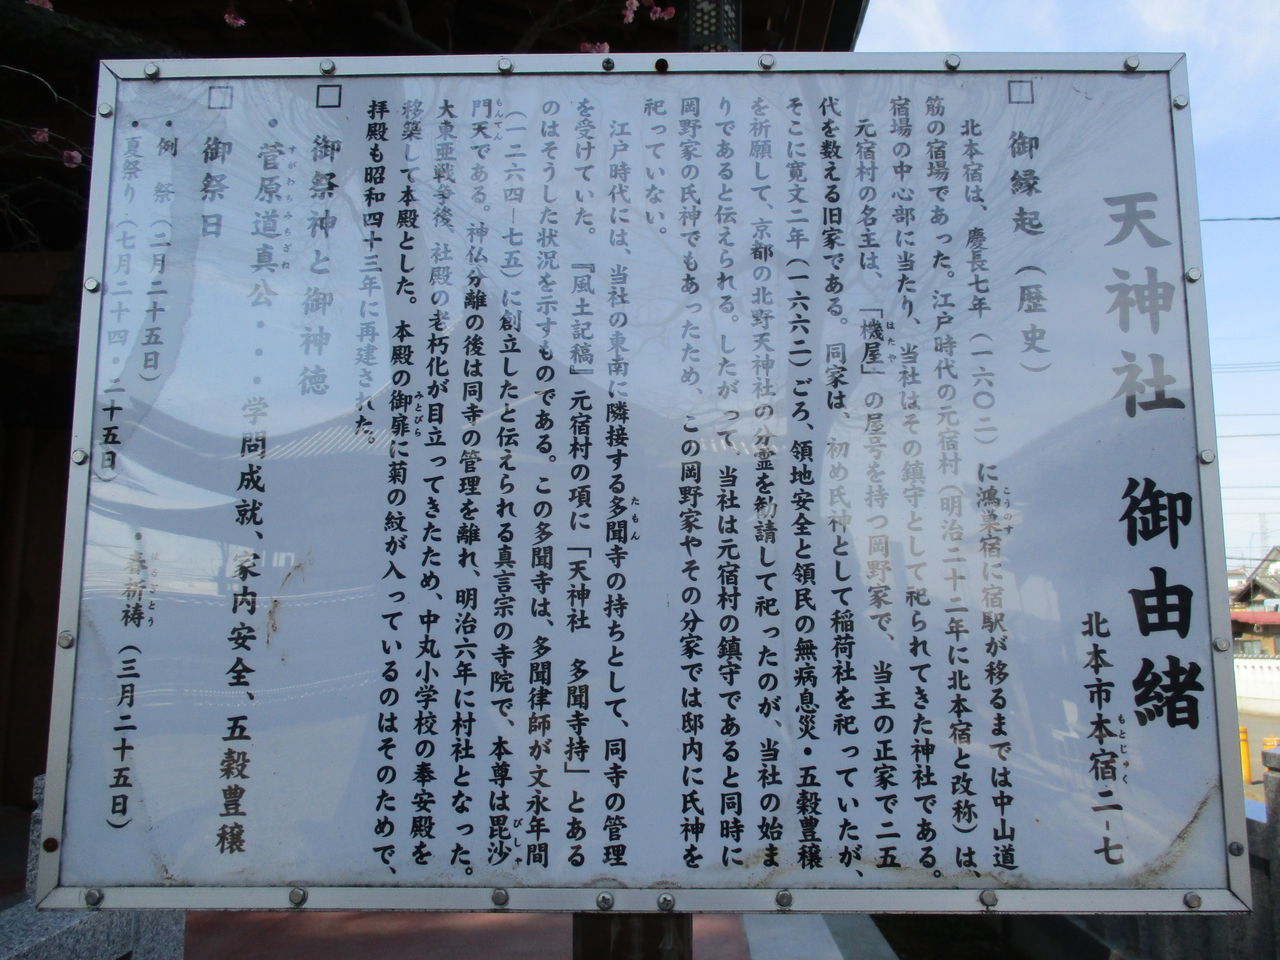 天神社 御由緒
北本市本宿二-七
□ 御縁起(歴史)
北本宿は、慶長七年(一六〇二)に鴻巣宿に宿駅が移るまでは中山道
筋の宿場であった。江戸時代の元宿村(明治二十二年に北本宿と改称)は、
宿場の中心部に当たり、当社はその鎮守として祀られてきた神社である。
元宿村の名主は、「機屋」の屋号を持つ岡野家で、当主の正家で二五
代を数える旧家である。同家は、初め氏神として稲荷社を祀っていたが、
そこに寛文二年(一六六二)ごろ、領地安全と領民の無病息災・五穀豊穣
を祈願して、京都の北野天神社の分霊を勧請して祀ったのが、当社の始ま
りであると伝えられる。したがって、当社は元宿村の鎮守であると同時に
岡野家の氏神でもあったため、この岡野家やその分家では邸内に氏神を
祀っていない。
江戸時代には、当社の東南に隣接する多聞寺の持ちとして、同寺の管理
を受けていた。『風土記稿』元宿村の項に「天神社 多聞寺持」とある
のはそうした状況を示すものである。この多聞寺は、多聞律師が文永年間
(一二六四-七五)に創立したと伝えられる真言宗の寺院で、本尊は毘沙
門天である。神仏分離の後は同寺の管理を離れ、明治六年に村社となった。
大東亜戦争後、社殿の老朽化が目立ってきたため、中丸小学校の奉安殿を
移築して本殿とした。本殿の御扉に菊の紋が入っているのはそのためで、
拝殿も昭和四十三年に再建された。
□ 御祭神と御神徳
・菅原道真公・・学問成就、家内安全、五穀豊穣
□ 御祭日
・例 祭(二月二十五日) ・春祈祷(三月二十五日)
・夏祭り(七月二十四・二十五日)